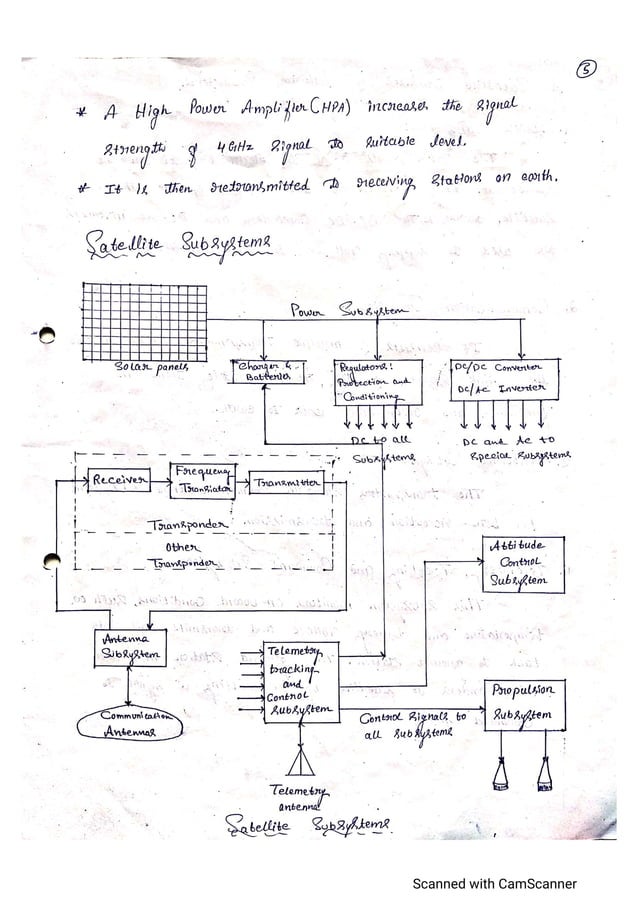 3
* A High Power Amplifier (HPA) increases the signal
strength of 4 GHz signal to suitable level.
* It is then retransmitted to receiving stations on earth.
Satellite Subsystems
Power Subsystem
Solar panels
Charger &
Batteries
Regulators:
Protection and
Conditioning
DC/DC Converter
DC/AC Inverter
DC to all
Subsystems
DC and AC to
special subsystems
Receiver
Frequency
Translator
Transmitter
Transponder
Other
Transponder
Attitude
Control
Subsystem
Antenna
Subsystem
Telemetry
tracking
and
Control
subsystem
Communication
Antennas
Control Signals to
all subsystems
Propulsion
Subsystem
Telemetry
antenna
Satellite Subsystems.
Scanned with CamScanner